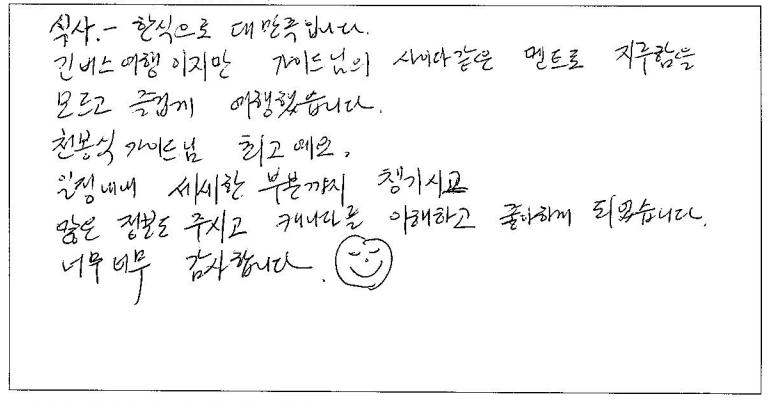 식사.- 한식으로 대만족입니다.
긴버스여행이지만 가이드님의 사이다같은 멘트로 지루함을
모르고 즐겁게 여행했습니다.
천봉식 가이드님 최고예요.
일정내내 세세한 부분까지 챙기시고
많은 정보도 주시고 캐나다를 이해하고 좋아하게 되었습니다.
너무너무 감사합니다.